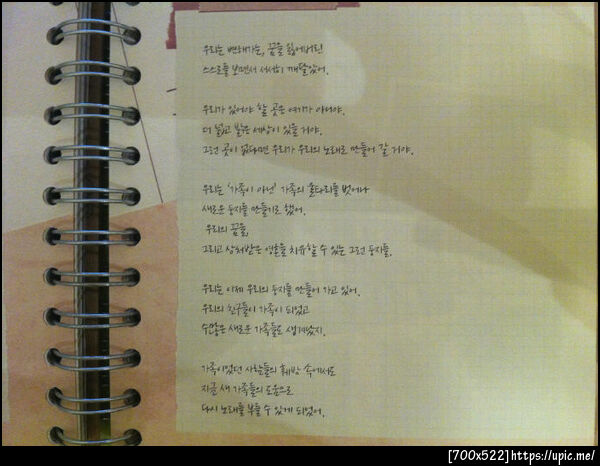 우리는 변해가는, 꿈을 잃어버린
스스로를 보면서 서서히 깨달았어.
우리가 있어야 할 곳은 여기가 아니야.
더 넓고 밝은 세상이 있을 거야.
그런 곳이 없다면 우리가 우리의 노래로 만들어 갈 거야.
우리는 '가족이 아닌' 가족의 울타리를 벗어나
새로운 둥지를 만들기로 했어.
우리의 꿈을,
그리고 상처받은 영혼을 치유할 수 있는 그런 둥지를.
우리는 이제 우리의 둥지를 만들어 가고 있어.
우리의 친구들이 가족이 되었고
수많은 새로운 가족들도 생겨났지.
가족이었던 사람들의 훼방 속에서도
지금 새 가족들의 도움으로
다시 노래를 부를 수 있게 되었어.
[700x522]https://upic.me/